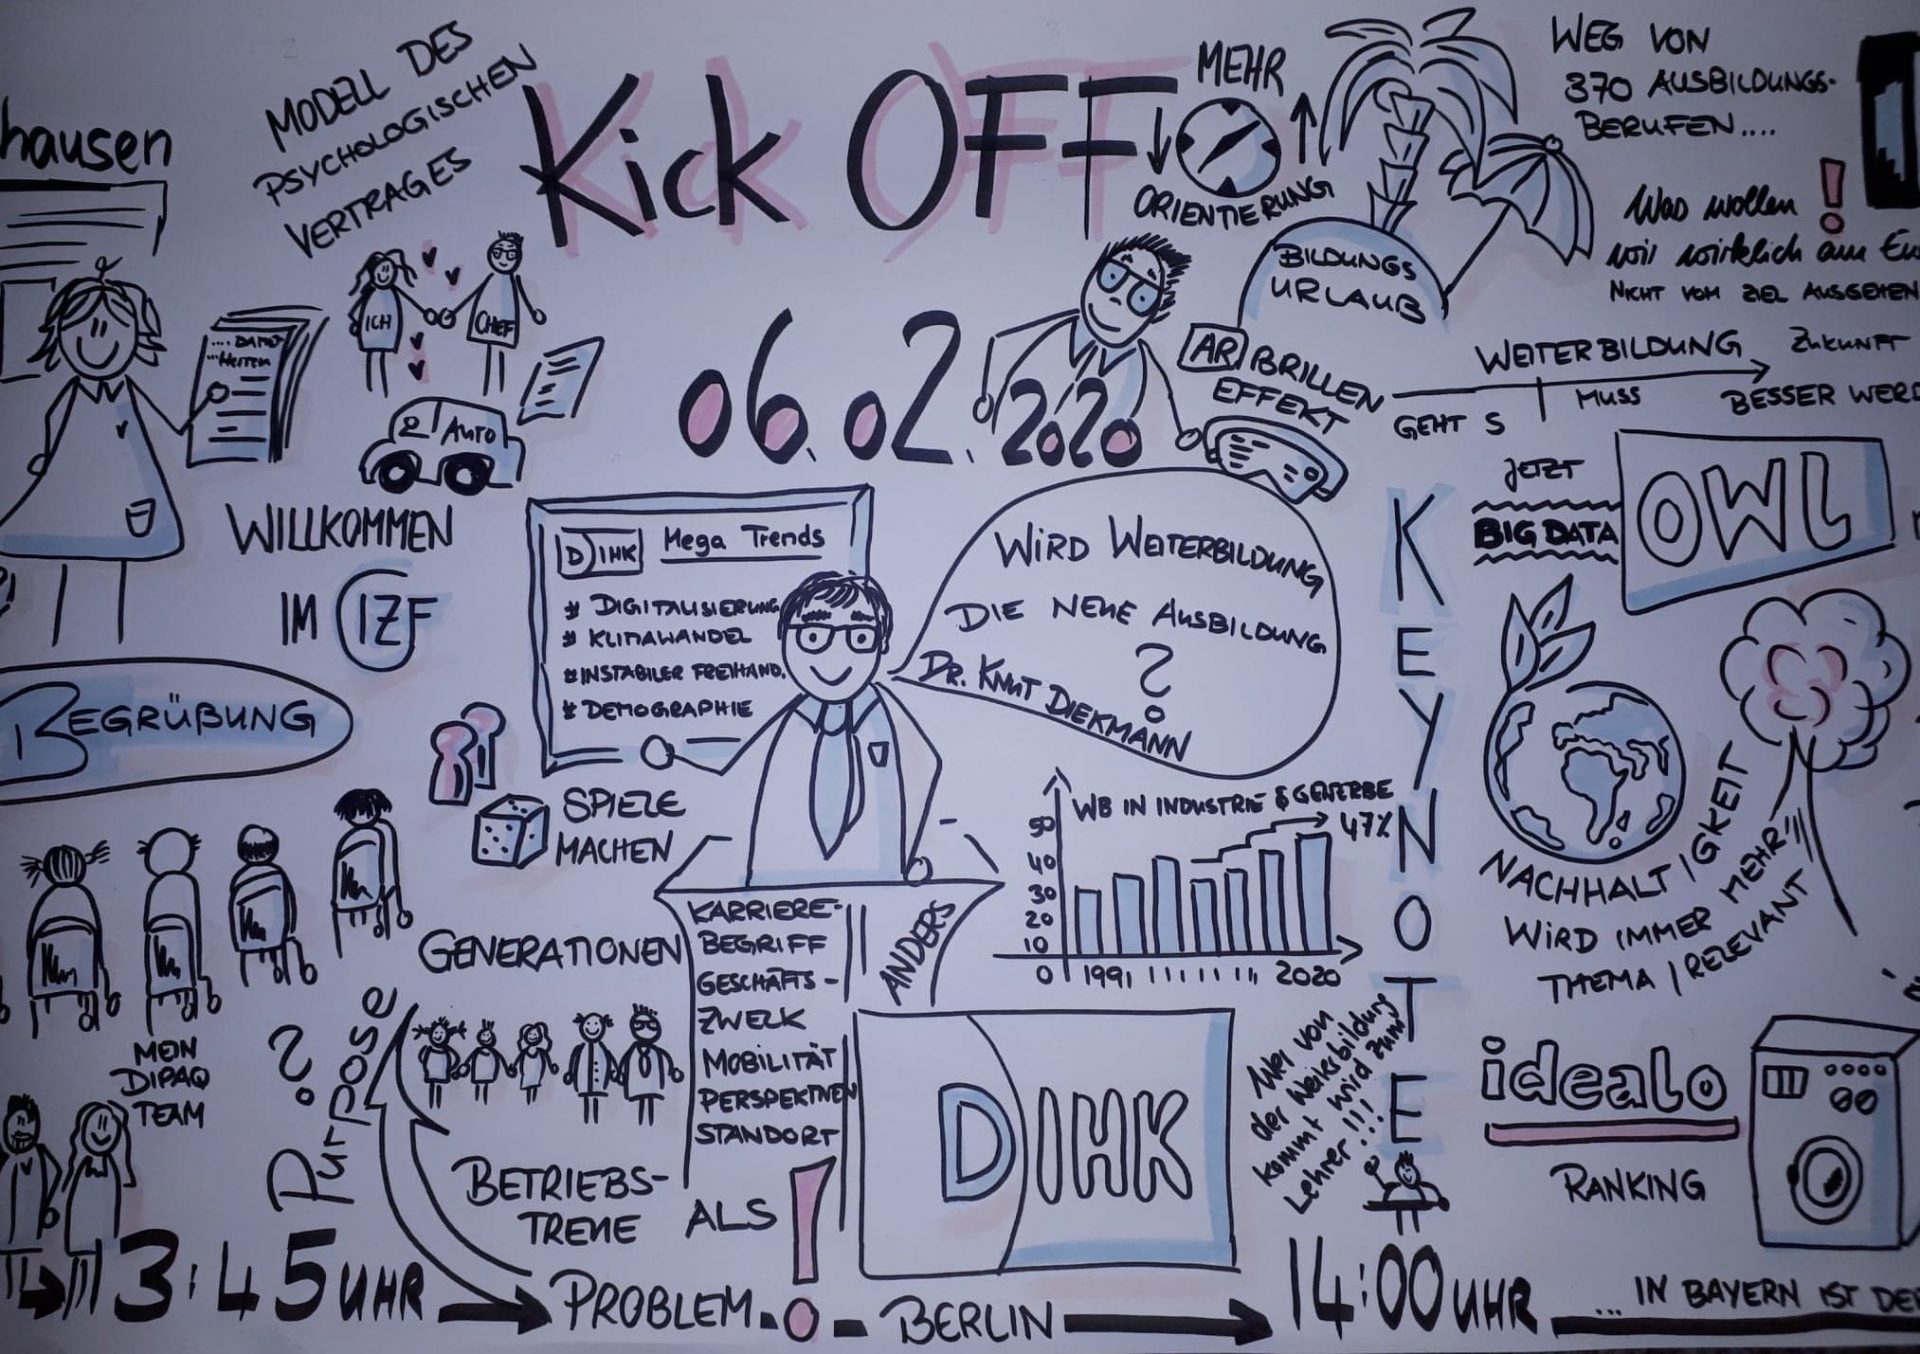 hausen
MODELL DES
PSYCHOLOGISCHEN
VERTRAGES
ICH
CHEF
.... DAMEN
... HERREN
Auto
Kick OFF
06.02.2020
MEHR
ORIENTIERUNG
BILDUNGS
URLAUB
AR BRILLEN
EFFEKT
WEG VON
370 AUSBILDUNGS-
BERUFEN....
Was wollen
wir wirklich am
NICHT VOM ZIEL AUSGEHEN
WEITERBILDUNG
ZUKUNFT
GEHT S
MUSS
BESSER WERD
JETZT
BIG DATA
OWL
WILLKOMMEN
IM IZF
BEGRÜßUNG
DIHK Mega Trends
# DIGITALISIERUNG
# KLIMAWANDEL
# INSTABILER FREIHAND.
# DEMOGRAPHIE
WIRD WEITERBILDUNG
DIE NEUE AUSBILDUNG
?
DR. KNUT DIEKMANN
KEYNOTE
SPIELE
MACHEN
WB IN INDUSTRIE & GEWERBE
47%
50
40
30
20
10
0
1991
2020
NACHHALTIGKEIT
WIRD IMMER MEHR
THEMA / RELEVANT
GENERATIONEN
KARRIERE-
BEGRIFF
GESCHÄFTS-
ZWECK
MOBILITÄT
PERSPEKTIVEN
STANDORT
ANDERS
MEIN
DIPAQ
TEAM
Purpose ?
BETRIEBS-
TREUE
ALS
DIHK
Wer von
der Weiterbildung
kommt wird zum
Lehrer!!!
idealo
RANKING
13:45 UHR
PROBLEM
BERLIN
14:00 UHR
... IN BAYERN IST DE